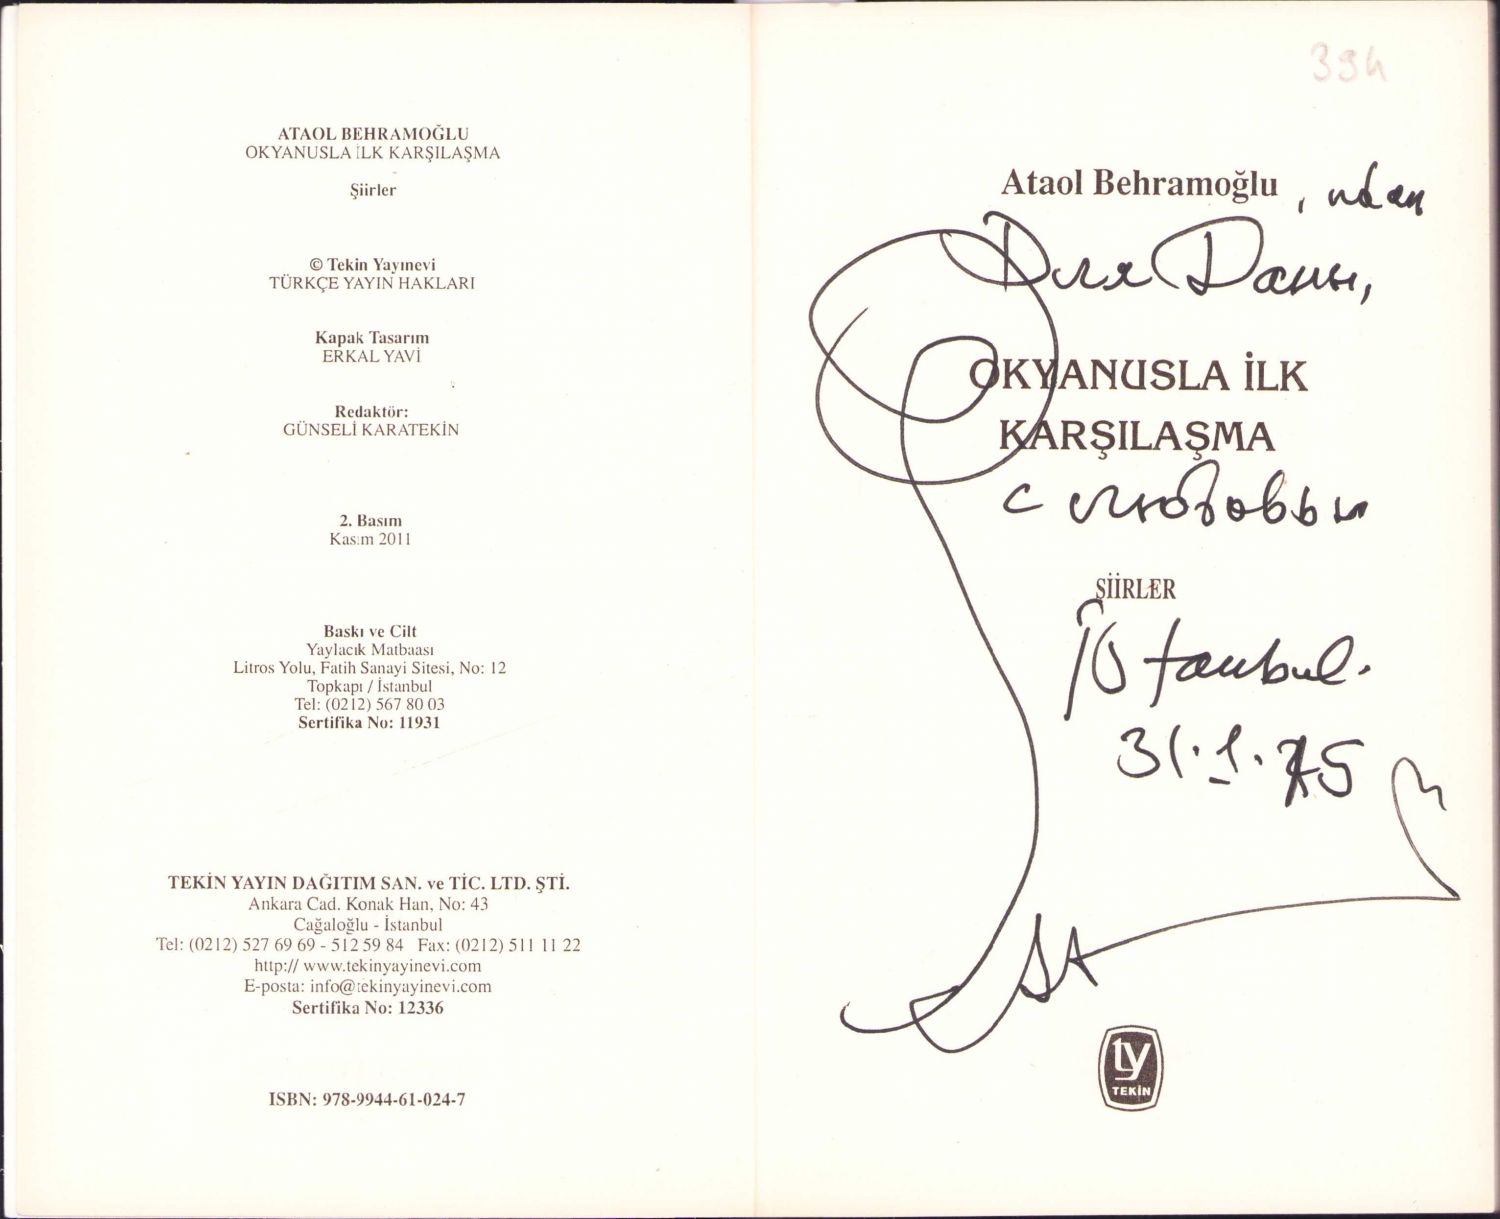 ATAOL BEHRAMOĞLU
OKYANUSLA İLK KARŞILAŞMA
Şiirler
© Tekin Yayınevi
TÜRKÇE YAYIN HAKLARI
Kapak Tasarım
ERKAL YAVİ
Redaktör:
GÜNSELİ KARATEKİN
2. Basım
Kasım 2011
Baskı ve Cilt
Yaylacık Matbaası
Litros Yolu, Fatih Sanayi Sitesi, No: 12
Topkapı / İstanbul
Tel: (0212) 567 80 03
Sertifika No: 11931
TEKİN YAYIN DAĞITIM SAN. ve TİC. LTD. ŞTİ.
Ankara Cad. Konak Han, No: 43
Cağaloğlu - İstanbul
Tel: (0212) 527 69 69 - 512 59 84 Fax: (0212) 511 11 22
http:// www.tekinyayinevi.com
E-posta: info@tekinyayinevi.com
Sertifika No: 12336
ISBN: 978-9944-61-024-7
394
Ataol Behramoğlu, ndan
Для
OKYANUSLA İLK
KARŞILAŞMA
с любовью
ŞİİRLER
İstanbul.
31.1.
ty
TEKİN